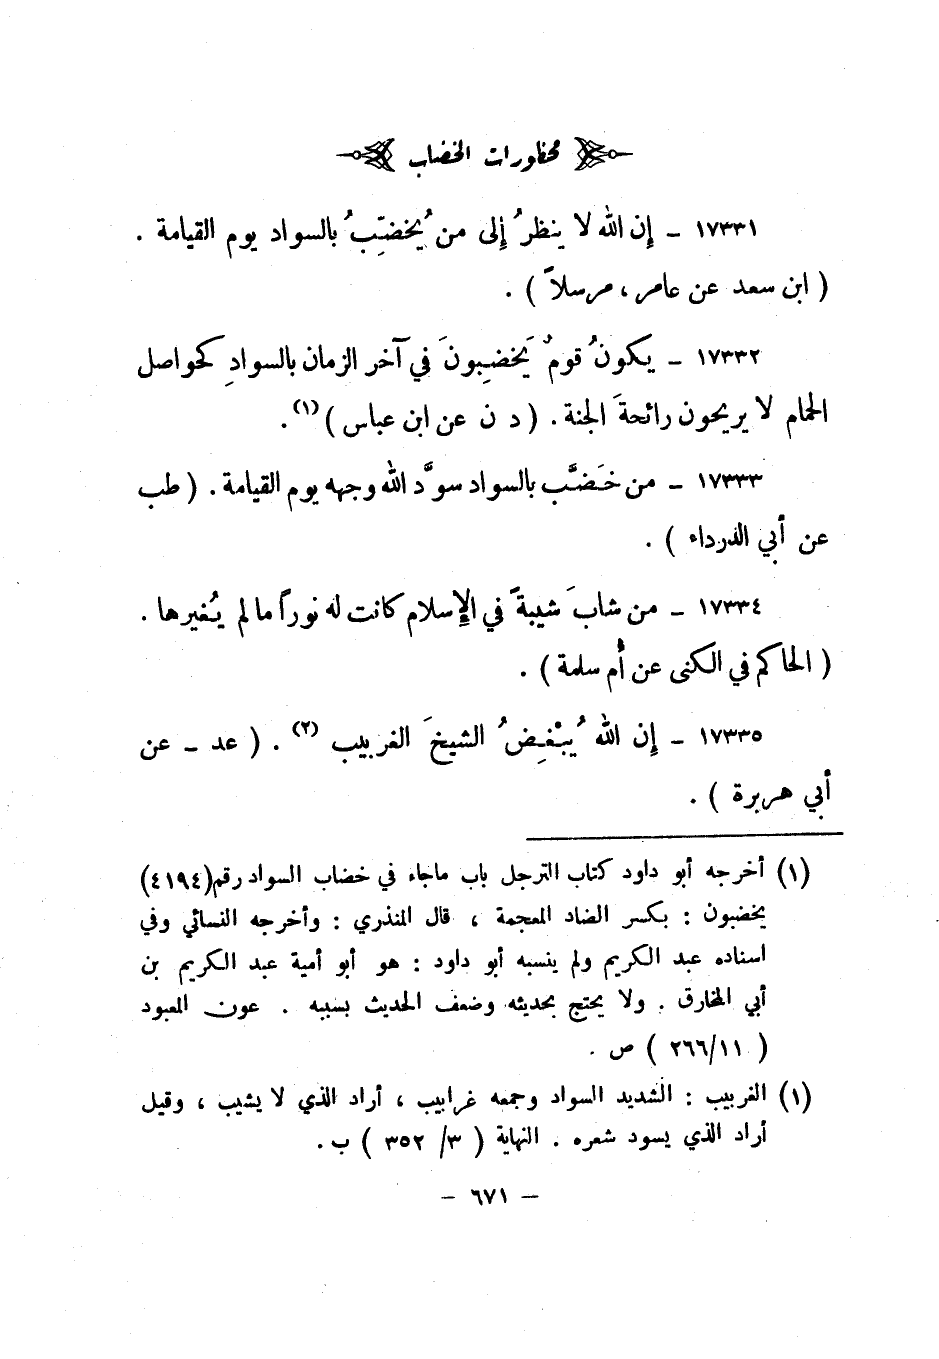 محظورات الخضاب
١٧٣٣١ ـ إن الله لا ينظرُ إلى من يُخضِّبُ بالسواد يوم القيامة .
( ابن سعد عن عامر ، مرسلاً ) .
١٧٣٣٢ ـ يكونُ قومٌ يَخضِبونَ في آخر الزمان بالسوادِ كحواصل
الحمام لا يريحون رائحةَ الجنة . ( د ن عن ابن عباس )(١) .
١٧٣٣٣ ـ من خَضَّب بالسواد سوَّد الله وجهه يوم القيامة . ( طب
عن أبي الدرداء ) .
١٧٣٣٤ ـ من شابَ شيبةً في الإسلام كانت له نوراً ما لم يُغيرها .
( الحاكم في الكنى عن أم سلمة ) .
١٧٣٣٥ ـ إن الله يُبْغِضُ الشيخَ الغربيب (٢) . ( عد ـ عن
أبي هريرة ) .
(١) أخرجه أبو داود كتاب الترجل باب ماجاء في خضاب السواد رقم(٤١٩٤)
يخضبون : بكسر الضاد المعجمة ، قال المنذري : وأخرجه النسائي وفي
اسناده عبد الكريم ولم ينسبه أبو داود : هو أبو أمية عبد الكريم بن
أبي المخارق . ولا يحتج بحديثه وضعف الحديث بسببه . عون المعبود
( ٢٦٦/١١ ) ص .
(١) الغربيب : الشديد السواد وجمعه غرابيب ، أراد الذي لا يشيب ، وقيل
أراد الذي يسود شعره . النهاية ( ٣/ ٣٥٢ ) ب .
ـ ٦٧١ ـ